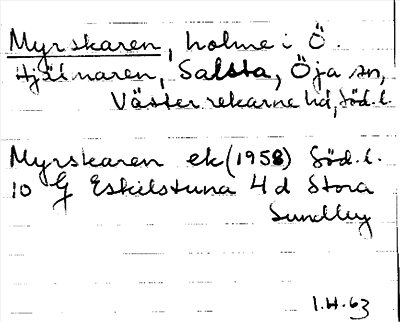 Myrskaren, holme i Ö.
Hjälmaren, Salsta, Öja sn,
Väster rekarne hd, Söd. l.
Myrskaren ek (1958) Söd. l.
10 G Eskilstuna 4 d Stora
Sundby
I.H. 63